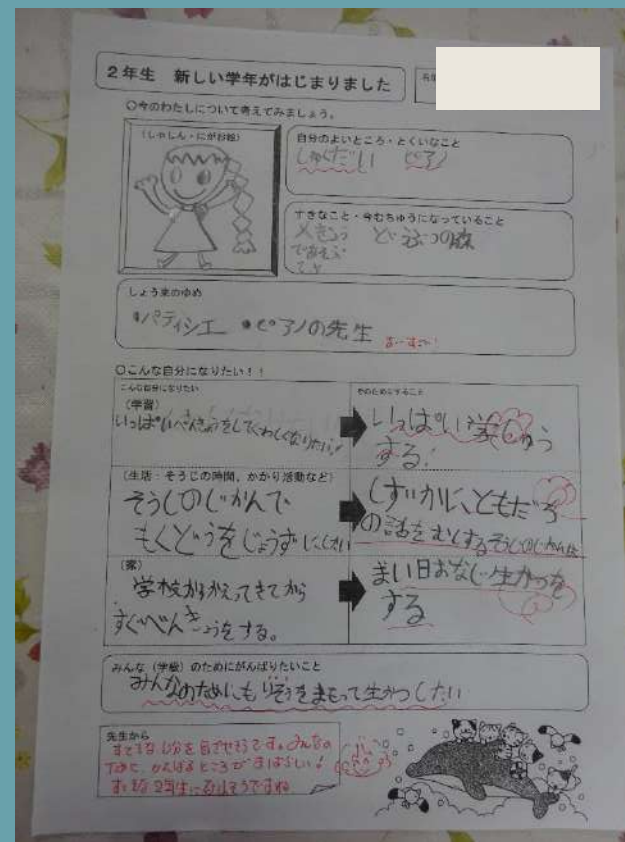 2年生 新しい学年がはじまりました
○今のわたしについて考えてみましょう。
(しゃしん・にがお絵)
自分のよいところ・とくいなこと
しゅくだい ピアノ
すきなこと・今むちゅうになっていること
どうぶつの森
しょう来のゆめ
・パティシエ ・ピアノの先生
○こんな自分になりたい!!
こんな自分になりたい
そのためにすること
(学習)
いっぱいべんきょうをしてくわしくなりたい!
いっぱい
する!
(生活・そうじの時間、かかり活動など)
そうじのじかんで
もくどうをじょうずにしたい
しずかに、ともだち
の話をむしするそうじのじかんは
(家)
学校からかえってきてから
すぐべんきょうをする。
まい日おなじ生かつを
する
みんな(学級)のためにがんばりたいこと
みんなのためにも をまもって生かつしたい
先生から
すてきな自分を目ざせそうです。みんなの
ために、がんばるところがすばらしい!
すてきな2年生になりそうですね